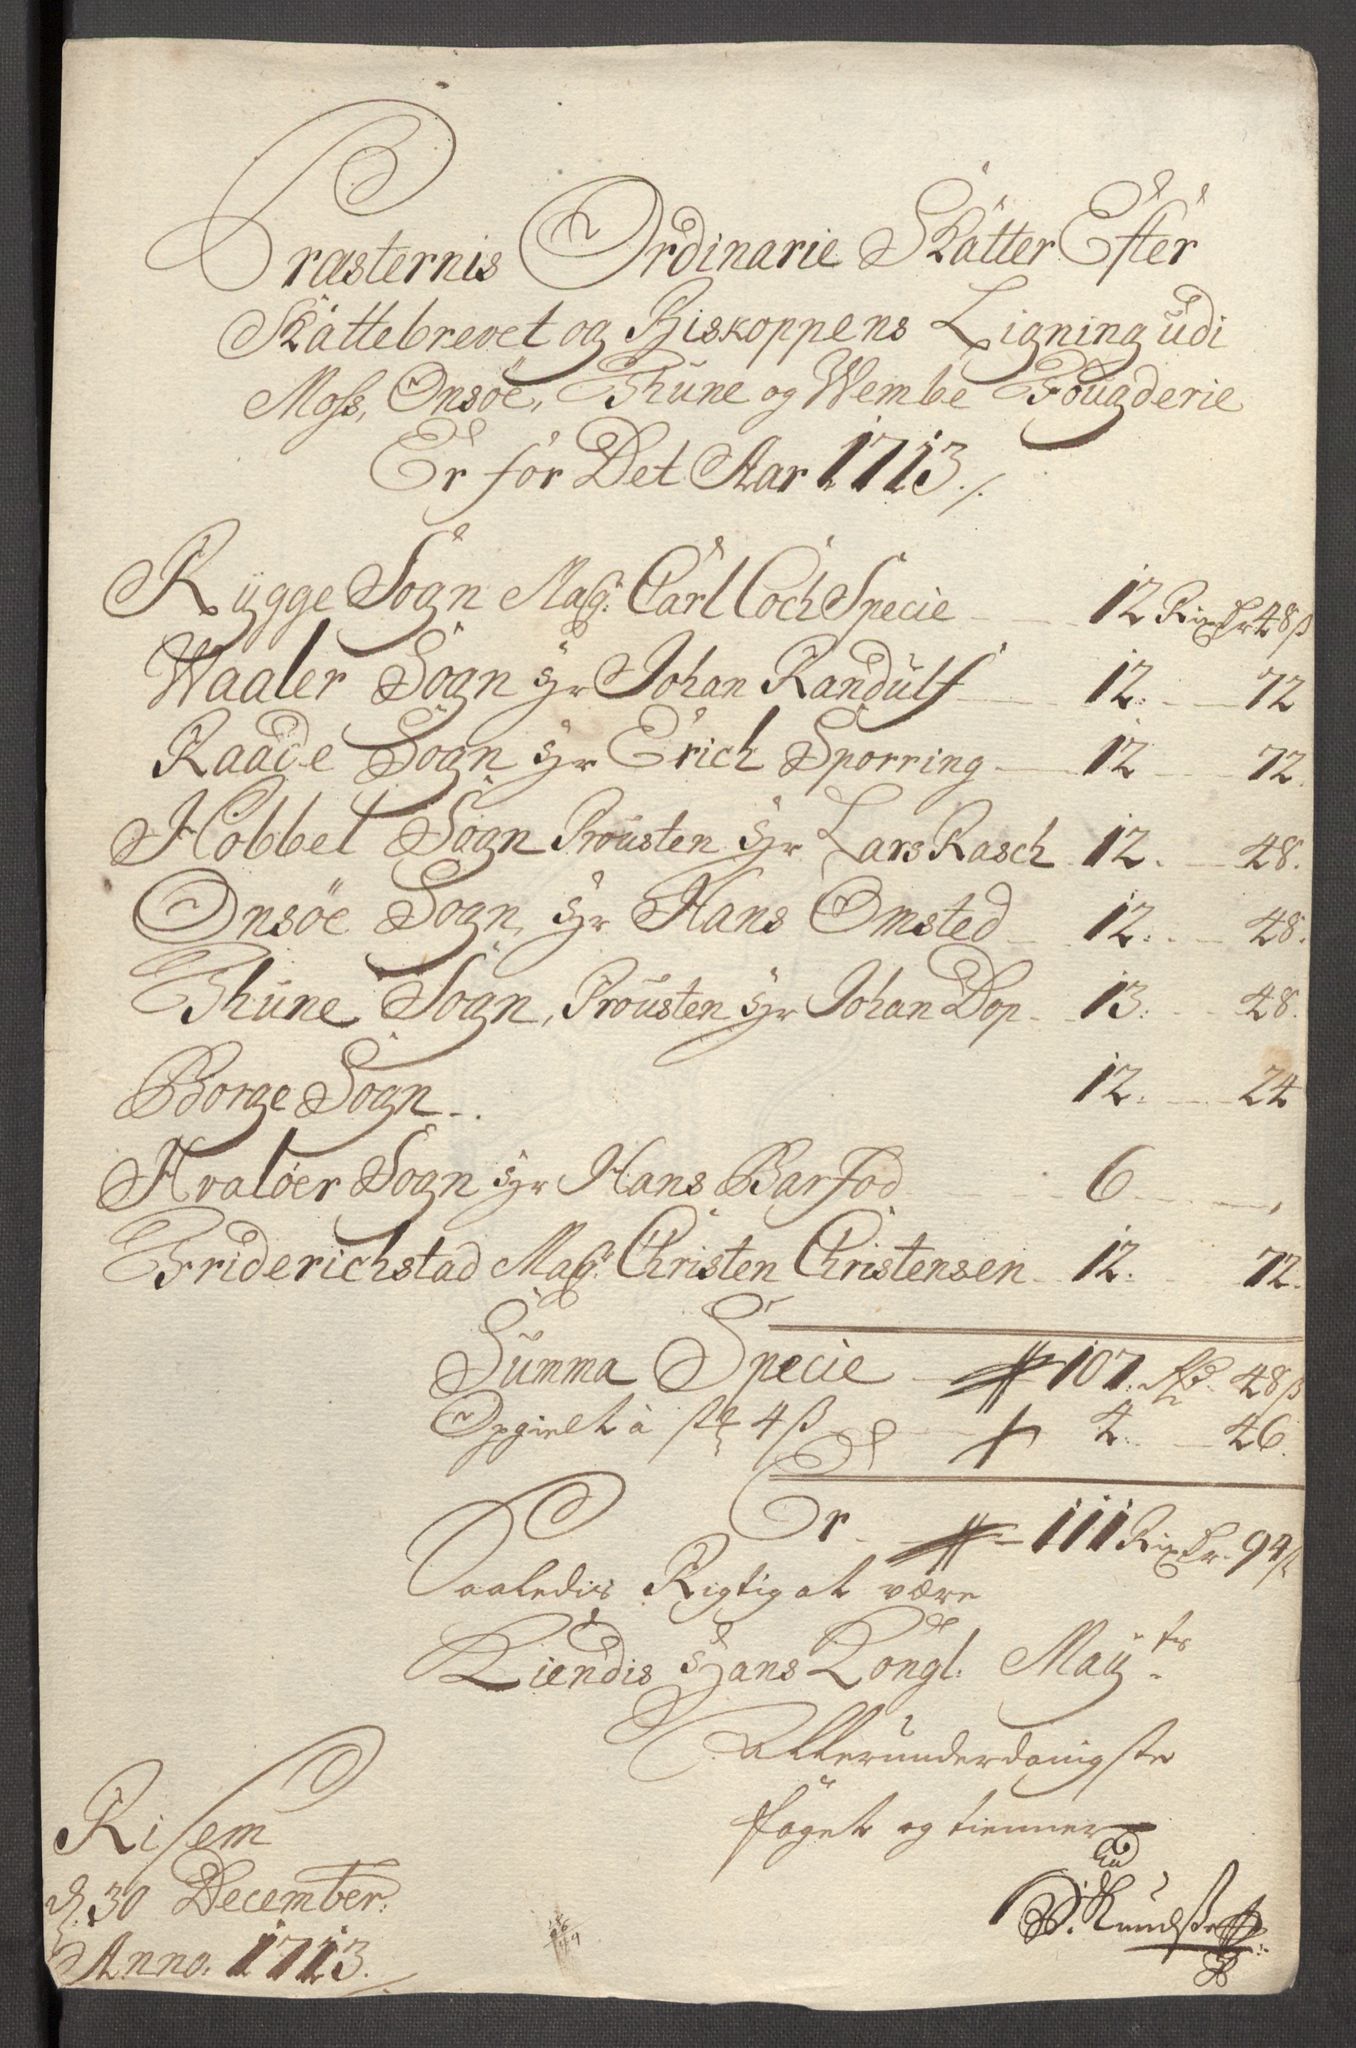 Præsternis Ordinarie Skatter Efter
Skattebrevet og Biskoppens Ligning udi
Moss, Onsøe, Thune og Wembe Fougderie
Er for Det Aar 1713./.
Rygge Sogn Mag: Carl Coch Specie 12 Rixdr 48 ß
Waaler Sogn Hr Johan Randulf 12 72
Raade Sogn Hr Erich Sporring 12 72.
Hobbel Sogn Prousten Hr Lars Rasch 12. 48.
Onsøe Sogn, Hr Hans Omsted 12. 48.
Thune Sogn, Prousten Hr Johan Dop 13. 48.
Borge Sogn 12. 24
Hvaløer Sogn Hr Hans Barfod 6
Friderichstad Mag: Christen Christensen 12. 72.
Summa Specie 107. Rd. 48 ß
Opgielt à 4 ß 4. 46.
Er 111 Rixdr. 94 ß
Saaledis Rigtig at være
Kiendis Hans Kongl. Mayts
Allerunderdanigste
foget og tienner
Risem
d. 30 December.
Anno. 1713./